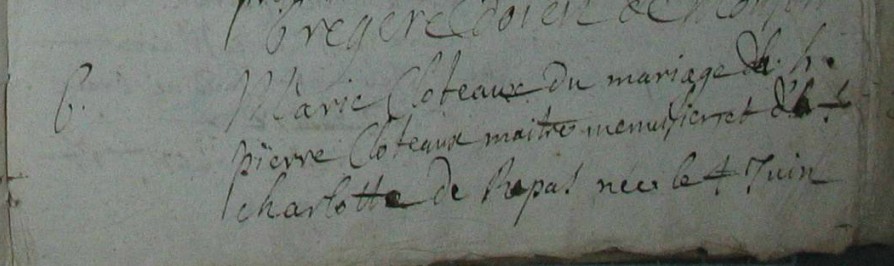 B. Marie Cloteaux du mariage d'h. h.
pierre Cloteaux maitre menusier et d'h. f.
charlotte de Repas née le 4 Juin